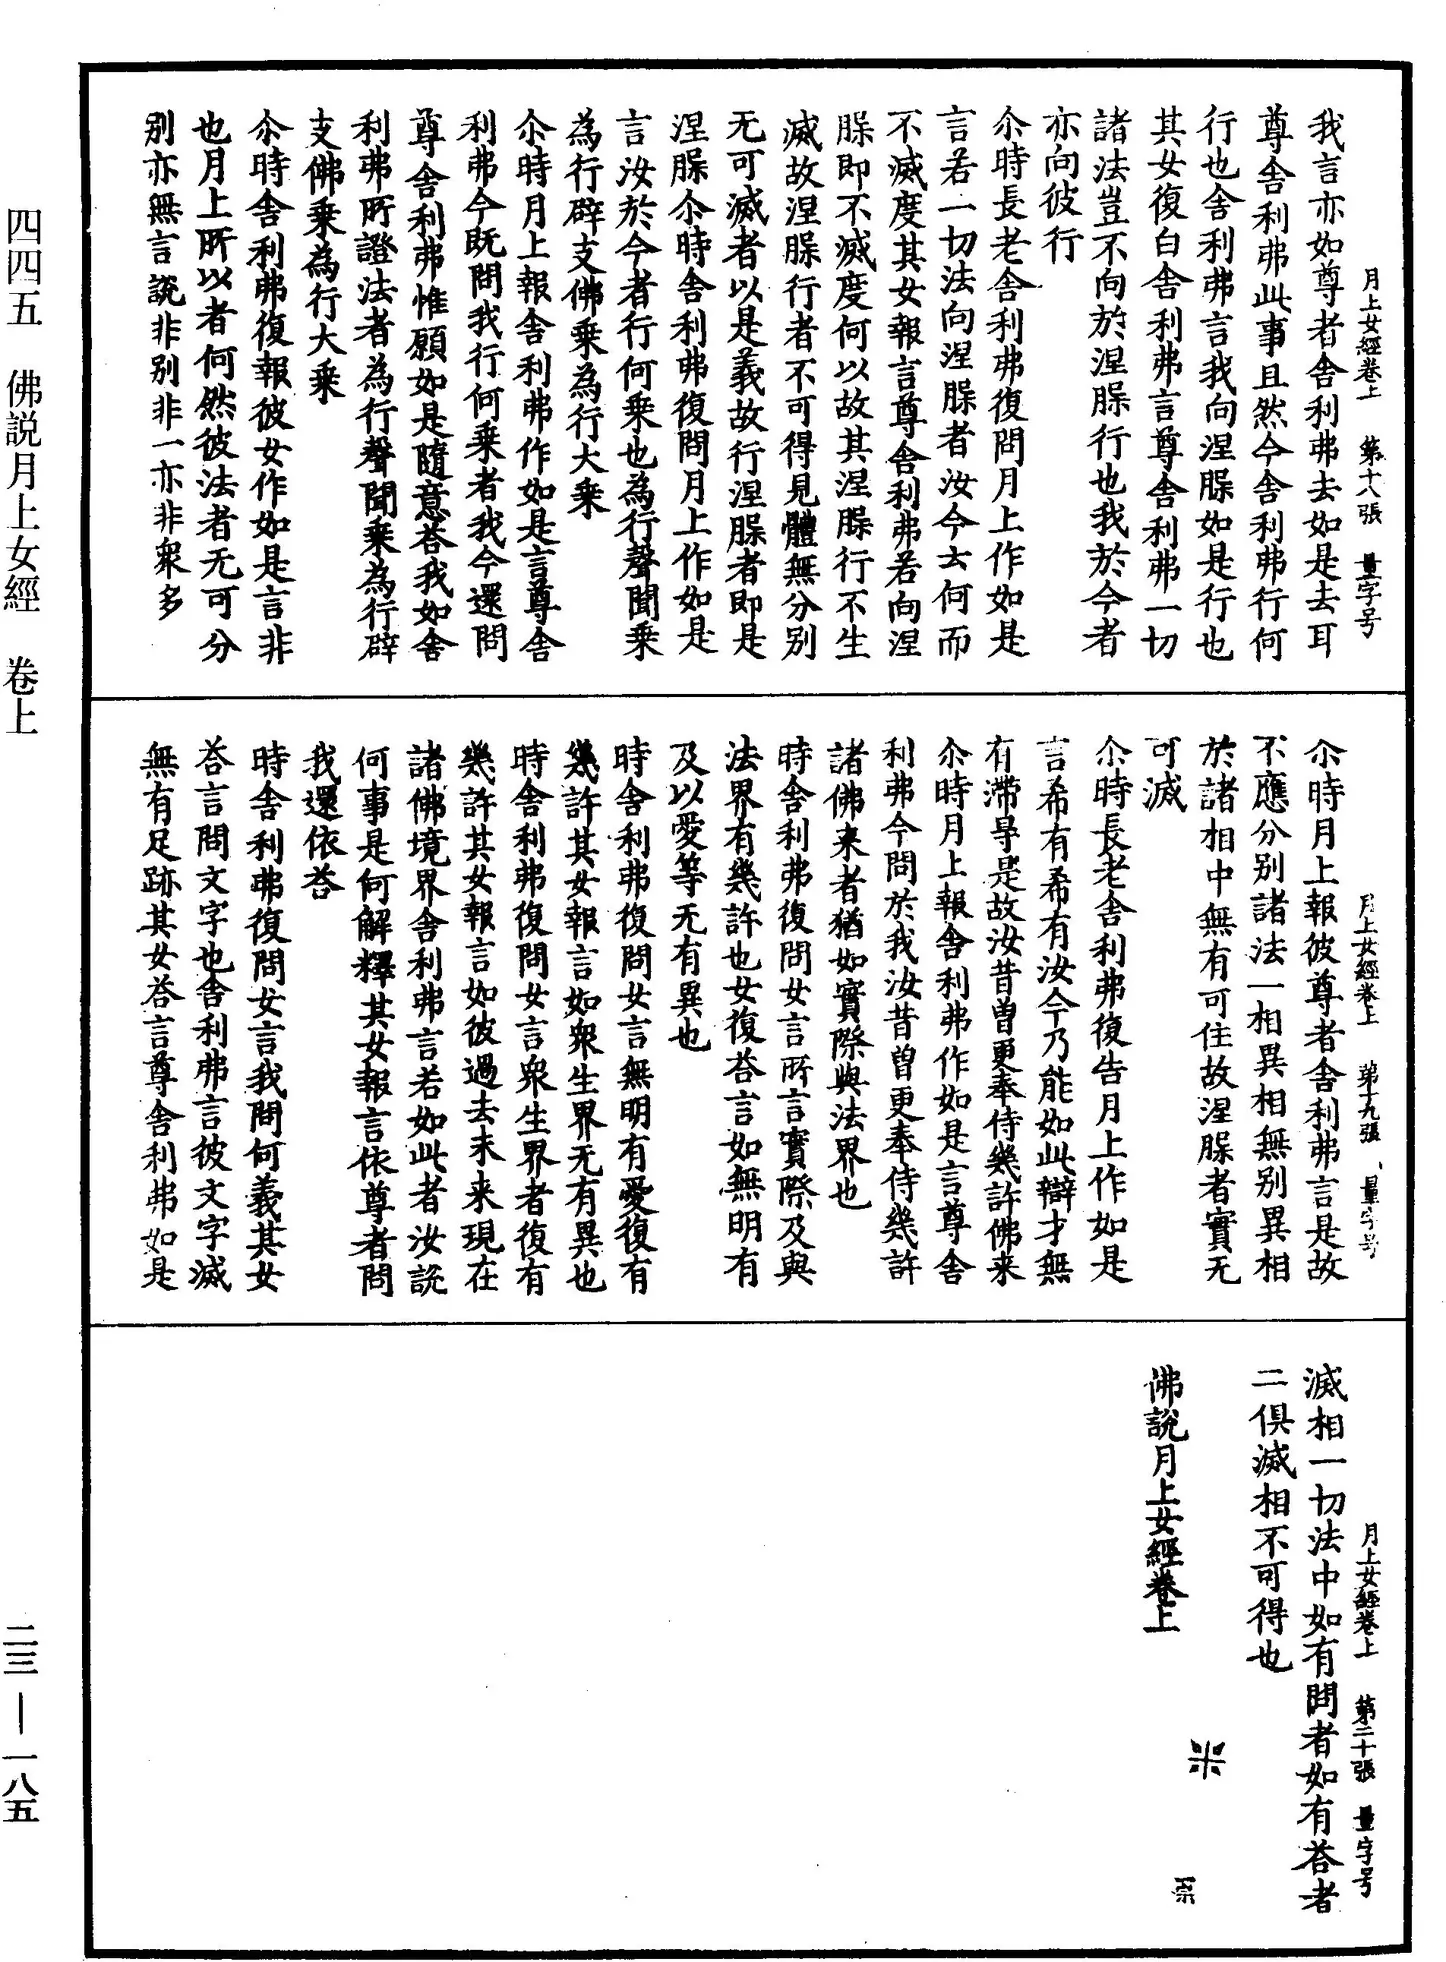 月上女經卷上　第十八張　量字号
我言亦如尊者舍利弗去如是去耳
尊舍利弗此事且然今舍利弗行何
行也舍利弗言我向涅腺如是行也
其女復白舍利弗言尊舍利弗一切
諸法豈不向於涅腺行也我於今者
亦向彼行
尒時長老舍利弗復問月上作如是
言若一切法向涅腺者汝今云何而
不滅度其女報言尊舍利弗若向涅
腺即不滅度何以故其涅腺行不生
滅故涅腺行者不可得見體無分別
无可滅者以是義故行涅腺者即是
涅腺尒時舍利弗復問月上作如是
言汝於今者行何乘也為行聲聞乘
為行辟支佛乘為行大乘
尒時月上報舍利弗作如是言尊舍
利弗今既問我行何乘者我今還問
尊舍利弗惟願如是隨意荅我如舍
利弗所證法者為行聲聞乘為行辟
支佛乘為行大乘
尒時舍利弗復報彼女作如是言非
也月上所以者何然彼法者无可分
別亦無言說非別非一亦非衆多
月上女經卷上　第十九張　量字号
尒時月上報彼尊者舍利弗言是故
不應分別諸法一相異相無別異相
於諸相中無有可住故涅腺者實无
可滅
尒時長老舍利弗復告月上作如是
言希有希有汝今乃能如此辯才無
有滯㝵是故汝昔曾更奉侍幾許佛来
尒時月上報舍利弗作如是言尊舍
利弗今問於我汝昔曾更奉侍幾許
諸佛来者猶如實際與法界也
時舍利弗復問女言所言實際及與
法界有幾許也女復荅言如無明有
及以愛等无有異也
時舍利弗復問女言無明有愛復有
幾許其女報言如衆生界无有異也
時舍利弗復問女言衆生界者復有
幾許其女報言如彼過去未来現在
諸佛境界舍利弗言若如此者汝說
何事是何解釋其女報言依尊者問
我還依荅
時舍利弗復問女言我問何義其女
荅言問文字也舍利弗言彼文字滅
無有足跡其女荅言尊舍利弗如是
月上女經卷上　第二十張　量字号
滅相一切法中如有問者如有荅者
二俱滅相不可得也
佛說月上女經卷上
四四五　佛説月上女經　卷上
二三—一八五